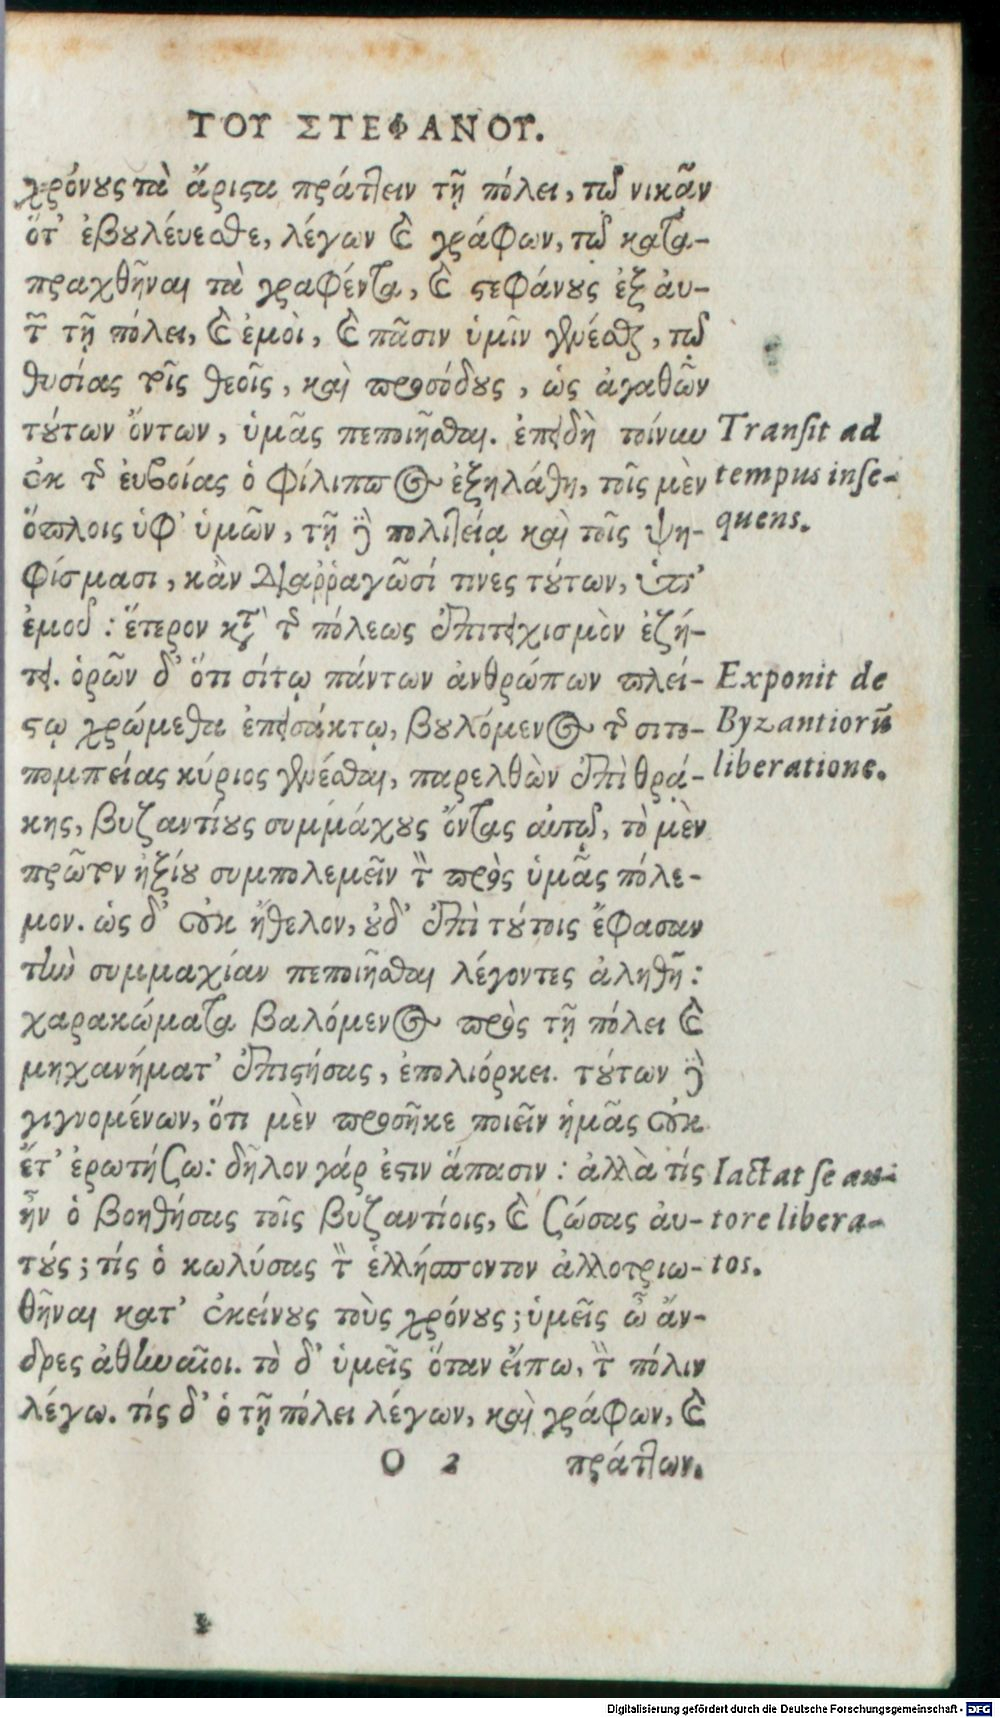 ΤΟΥ ΣΤΕΦΑΝΟΥ.
χρόνους τὰ ἄριστα πράττειν τῇ πόλει, τῷ νικᾶν
ὅτ' ἐβουλεύεσθε, λέγων καὶ γράφων, τῷ κατα-
πραχθῆναι τὰ γραφέντα, καὶ στεφάνους ἐξ αὐ-
τῶν τῇ πόλει, καὶ ἐμοὶ, καὶ πᾶσιν ὑμῖν γενέσθαι, τῷ
θυσίας τοῖς θεοῖς, καὶ προσόδους, ὡς ἀγαθῶν
τούτων ὄντων, ὑμᾶς πεποιῆσθαι. ἐπειδὴ τοίνυν
Transit ad
ἐκ τῆς εὐβοίας ὁ Φίλιππος ἐξηλάθη, τοῖς μὲν
tempus inse-
ὅπλοις ὑφ' ὑμῶν, τῇ δὲ πολιτείᾳ καὶ τοῖς ψη-
quens.
φίσμασι, κἂν διαῤῥαγῶσί τινες τούτων, ὑπ'
ἐμοῦ: ἕτερον κατὰ τῆς πόλεως ἐπιτειχισμὸν ἐζή-
τει. ὁρῶν δ' ὅτι σίτῳ πάντων ἀνθρώπων πλεί-
Exponit de
στῳ χρώμεθα ἐπεισάκτῳ, βουλόμενος τῆς σιτο-
Byzantiorũ
πομπείας κύριος γενέσθαι, παρελθὼν ἐπὶ θρά-
liberatione.
κης, βυζαντίους συμμάχους ὄντας αὐτῷ, τὸ μὲν
πρῶτον ἠξίου συμπολεμεῖν τὸν πρὸς ὑμᾶς πόλε-
μον. ὡς δ' οὐκ ἤθελον, οὐδ' ἐπὶ τούτοις ἔφασαν
τὴν συμμαχίαν πεποιῆσθαι λέγοντες ἀληθῆ:
χαρακώματα βαλόμενος πρὸς τῇ πόλει καὶ
μηχανήματ' ἐπιστήσας, ἐπολιόρκει. τούτων δὲ
γιγνομένων, ὅτι μὲν προσῆκε ποιεῖν ἡμᾶς οὐκ
ἔτ' ἐρωτήσω: δῆλον γάρ ἐστιν ἅπασιν: ἀλλὰ τίς
Iactat se au-
ἦν ὁ βοηθήσας τοῖς βυζαντίοις, καὶ σώσας αὐ-
tore libera-
τούς; τίς ὁ κωλύσας τὸν ἑλλήσποντον ἀλλοτριω-
tos.
θῆναι κατ' ἐκείνους τοὺς χρόνους; ὑμεῖς ὦ ἄν-
δρες ἀθηναῖοι. τὸ δ' ὑμεῖς ὅταν εἴπω, τὴν πόλιν
λέγω. τίς δ' ὁ τῇ πόλει λέγων, καὶ γράφων, καὶ
O 2
πράττων.
Digitalisierung gefördert durch die Deutsche Forschungsgemeinschaft - DFG